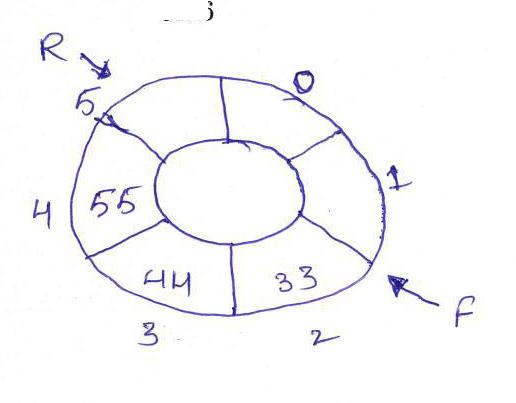 R
0
5
1
4
55
44
33
F
3
2